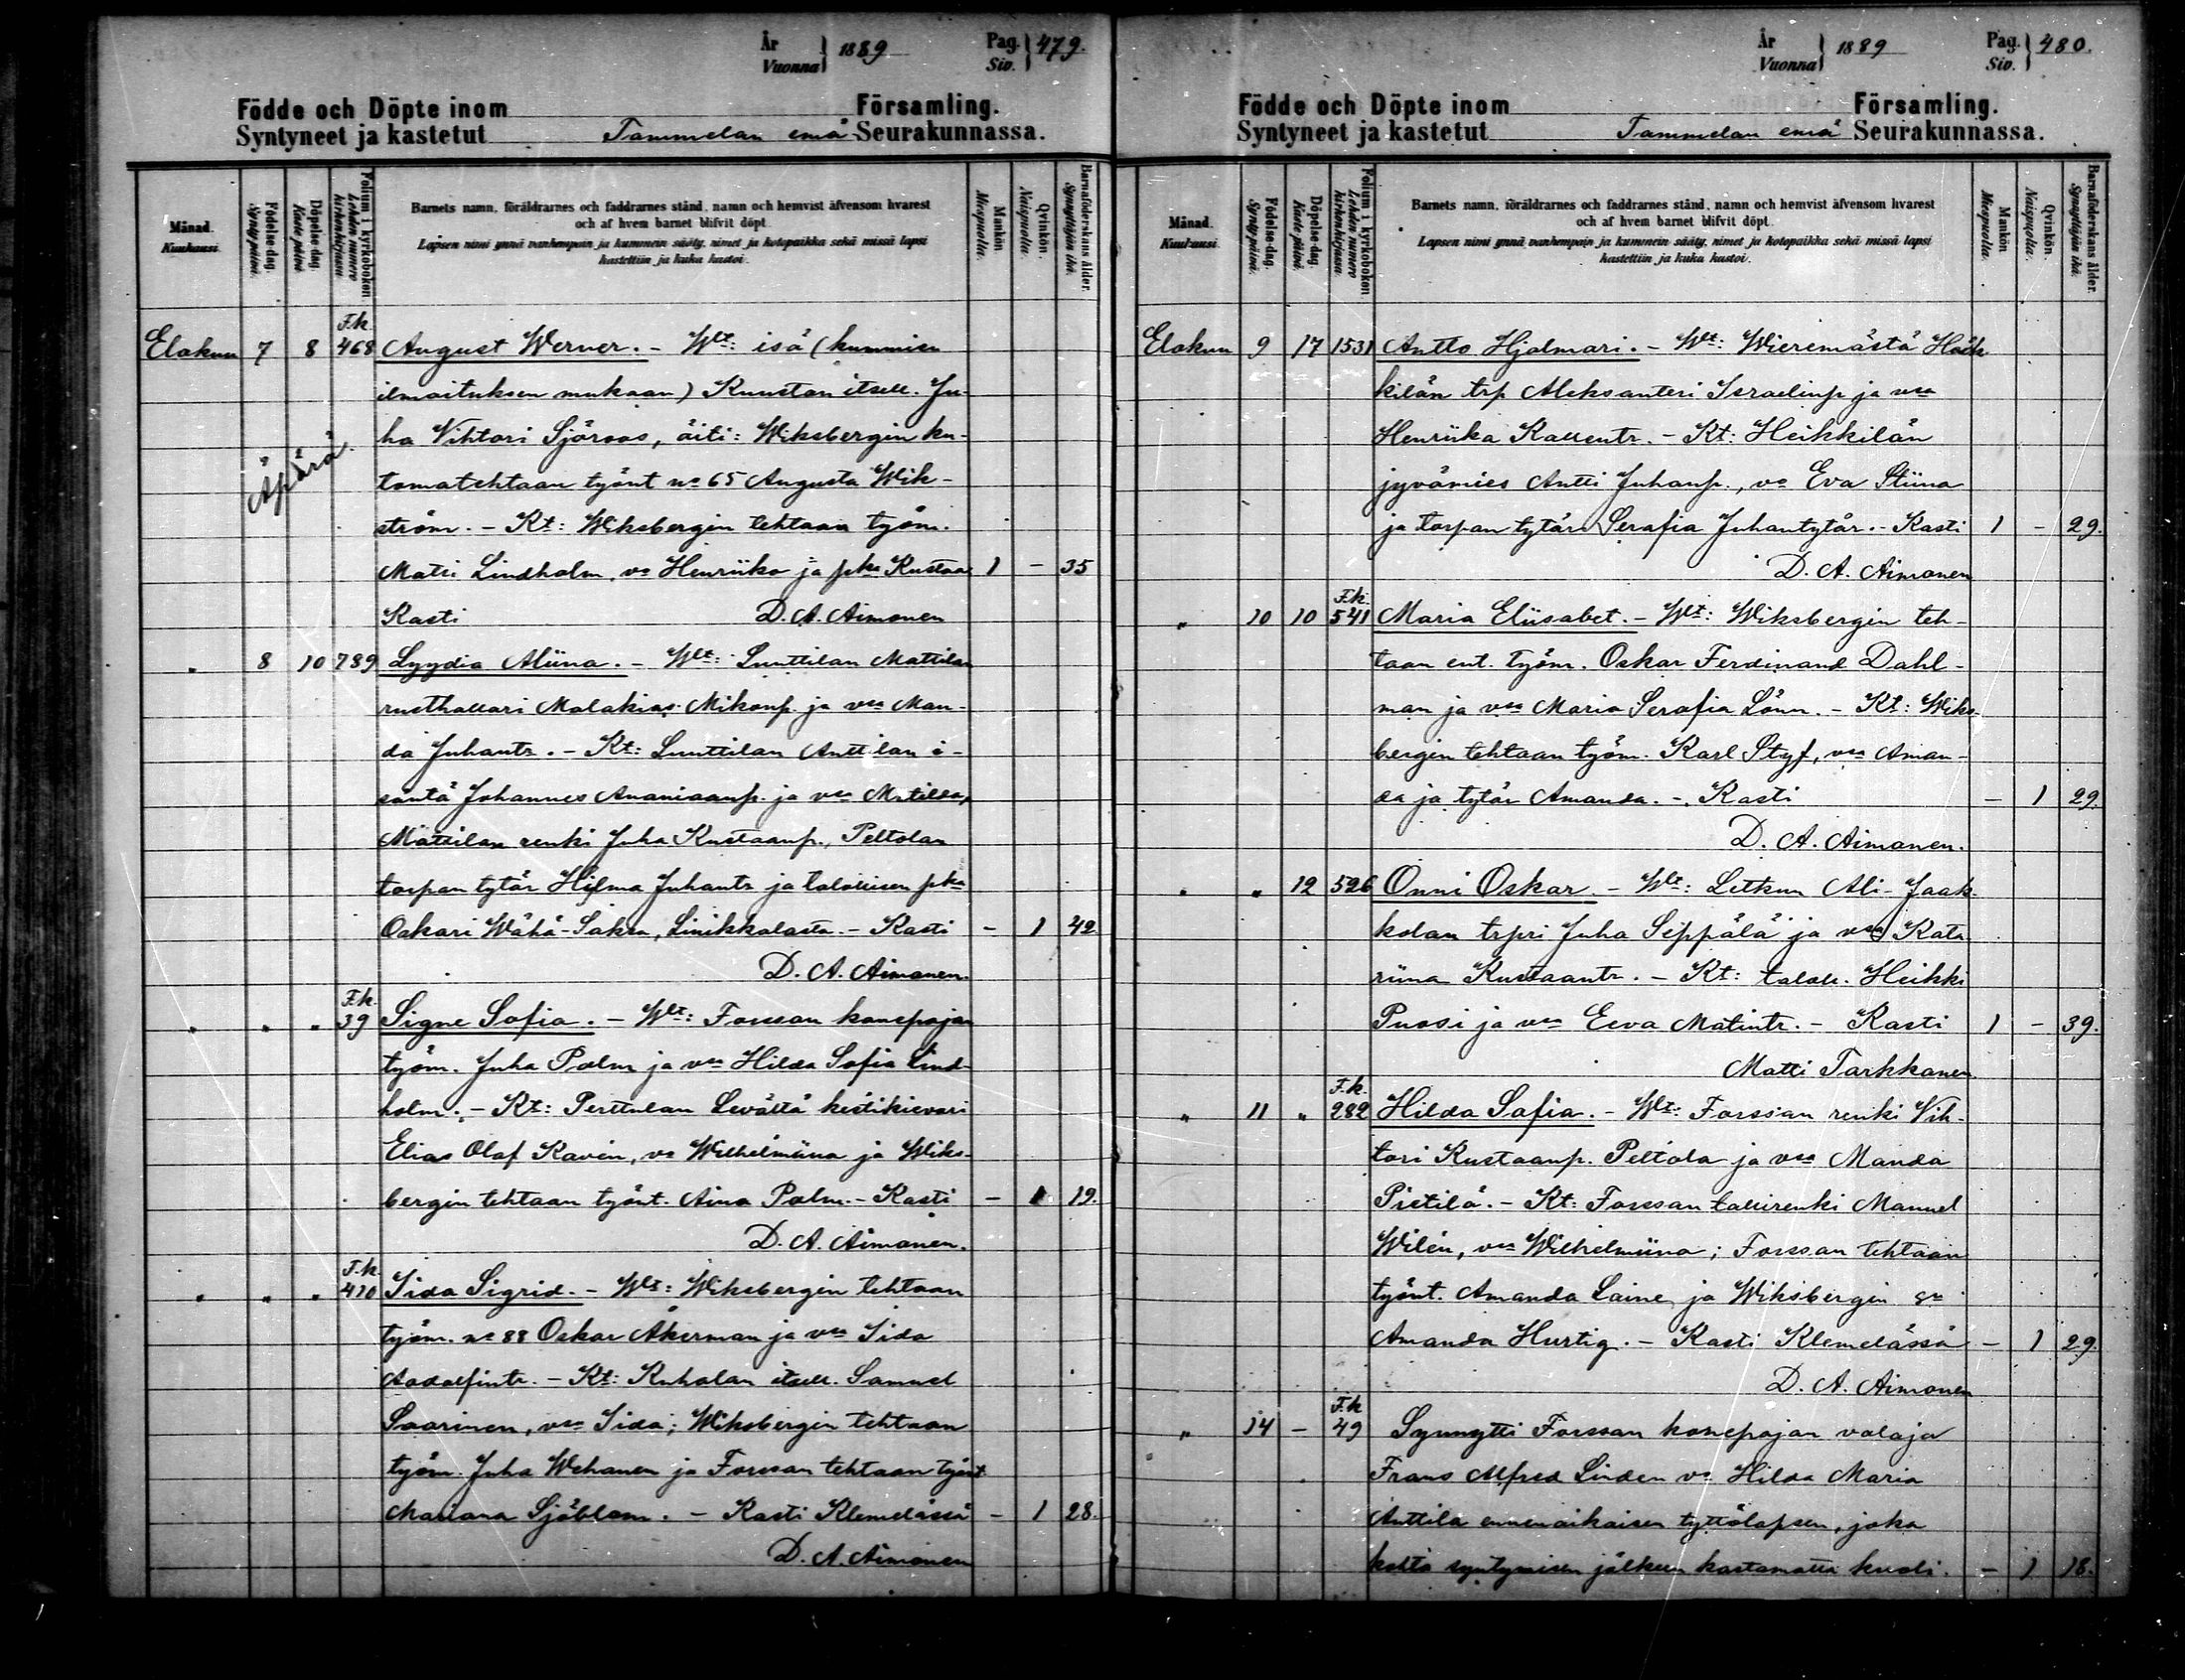 År
Vuonna } 1889
Pag.
Siv. } 479.
Födde och Döpte inom Församling.
Syntyneet ja kastetut Tammelan emä Seurakunnassa.
Månad.
Kuukausi.
Födelse-dag.
Syntypäivä.
Döpelse-dag.
Kaste päivä.
Folium i kyrkoboken
Lehden numero
kirkonkirjassa
Barnets namn, föräldrarnes och faddrarnes stånd, namn och hemvist äfvensom hvarest
och af hvem barnet blifvit döpt.
Lapsen nimi ynnä vanhempain ja kummein sääty, nimet ja kotopaikka sekä missä lapsi
kastettiin ja kuka kastoi.
Mankön
Miespuolia.
Qvinkön.
Naispuolia.
Barnaföderskans ålder.
Synnyttäjän ikä.
F.k.
Elokuu 7 8 468 August Werner. - Wlt: isä (kummien
ilmoituksen mukaan) Kuuston itsell. Ju-
ha Vihtori Sjöroos, äiti: Wiksbergin ku-
Äpärä.
tomatehtaan työnt no 65 Augusta Wik-
ström. - Kt: Wiksbergin tehtaan työm.
Matti Lindholm, vo Henriika ja pka Kustaa 1 - 35
Kasti D. A. Aimonen
" 8 10 789 Lyydia Aliina. - Wlt: Luuttilan Mattilan
rusthollari Malakias Mikonp. ja vsa Man-
da Juhantr. - Kt: Luuttilan Anttilan i-
säntä Johannes Ananiaanp. ja vsa Matilda,
Mattilan renki Juha Kustaanp., Peltolan
torpan tytär Hilma Juhantr ja talollisen pka
Oskari Wähä-Saksa, Linikkalasta. - Kasti - 1 42
D. A. Aimonen.
F.k.
" " " 39 Signe Sofia. - Wlt: Forssan konepajan
työm. Juha Palm ja vsa Hilda Sofia Lind-
holm. - Kt: Perttulan Levältä kestikievari
Elias Olof Kavén, vo Wilhelmiina ja Wiks-
bergin tehtaan työnt. Aina Palm. - Kasti - 1 19.
D. A. Aimonen.
F.k
" " " 470 Iida Sigrid. - Wlt: Wiksbergin tehtaan
työm. no 88 Oskar Åkerman ja vsa Iida
Aadolfintr. - Kt: Kuhalan itsell. Samuel
Saarinen, vsa Iida; Wiksbergin tehtaan
työm. Juha Wehanen ja Forssan tehtaan työnt
Mariana Sjöblom. - Kasti Klemelässä - 1 28.
D. A. Aimonen
År
Vuonna } 1889
Pag.
Siv. } 480.
Födde och Döpte inom Församling.
Syntyneet ja kastetut Tammelan emä Seurakunnassa.
Månad.
Kuukausi.
Födelse-dag.
Syntypäivä.
Döpelse-dag.
Kaste päivä.
Folium i kyrkoboken
Lehden numero
kirkonkirjassa
Barnets namn, föräldrarnes och faddrarnes stånd, namn och hemvist äfvensom hvarest
och af hvem barnet blifvit döpt.
Lapsen nimi ynnä vanhempain ja kummein sääty, nimet ja kotopaikka sekä missä lapsi
kastettiin ja kuka kastoi.
Mankön
Miespuolia.
Qvinkön.
Naispuolia.
Barnaföderskans ålder.
Synnyttäjän ikä.
Elokuu 9 17 1531 Antto Hjalmari. - Wlt: Wieremästä Heik
kilän trp Aleksanteri Israelinp ja vsa
Henriika Kallentr. - Kt: Heikkilän
jyvämies Antti Juhanp., vo Eva Stiina
ja torpan tytär Serafia Juhantytär. - Kasti 1 - 29.
D. A. Aimonen
F.k.
" 10 10 541 Maria Eliisabet. - Wlt: Wiksbergin teh-
taan ent. työm. Oskar Ferdinand Dahl-
man ja vsa Maria Serafia Lönn. - Kt: Wiks-
bergin tehtaan työm. Karl Styf, vsa Aman-
da ja tytär Amanda. - Kasti - 1 29.
D. A. Aimonen.
" " 12 526 Onni Oskar. - Wlt: Letkun Ali-Jaak-
kolan trpri Juha Seppälä ja vsa Kata-
riina Kustaantr. - Kt: taloll. Heikki
Puosi ja vsa Eeva Matintr. - Kasti 1 - 39.
Matti Tarkkanen
F.k.
" 11 " 282 Hilda Sofia. - Wlt: Forssan renki Vih-
tori Kustaanp. Peltola ja vsa Manda
Pietilä. - Kt: Forssan tallirenki Manuel
Wilén, vsa Wilhelmiina; Forssan tehtaan
työnt. Amanda Laine ja Wiksbergin
Amanda Hurtig. - Kasti Klemelässä - 1 29.
D. A. Aimonen
F.k
" 14 - 49 Synnytti Forssan konepajan valaja
Frans Alfred Linden vo Hilda Maria
Anttila ennenaikaisen tyttölapsen, joka
kohta syntymisen jälkeen kastamatta kuoli. - 1 18.